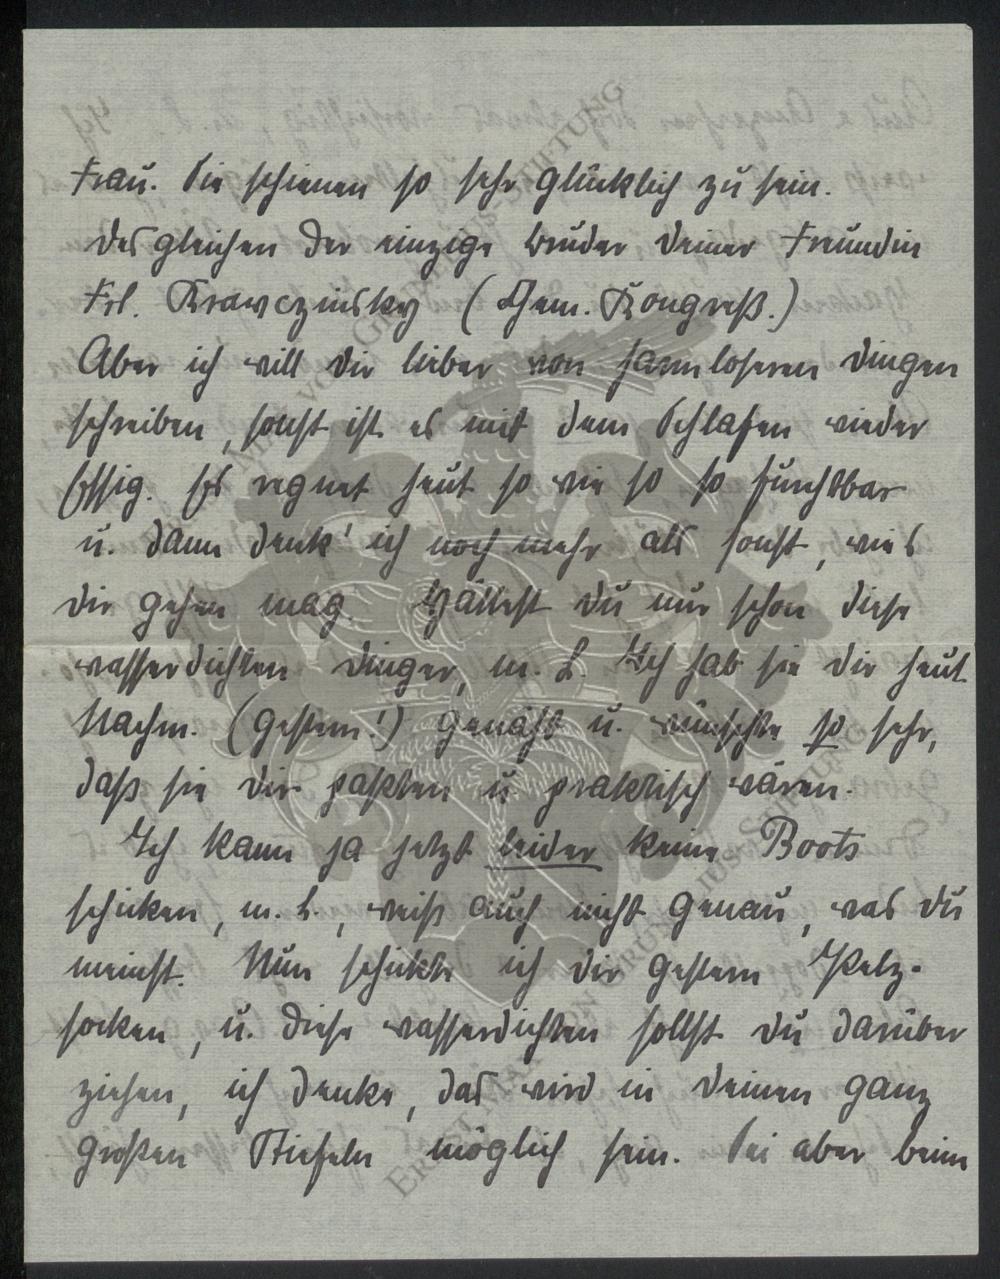 Frau. Sie schienen so sehr glücklich zu sein.
Desgleichen der einzige Bruder Deiner Freundin
Frl. Krawczinsky (Gem. Kongreß.)
Aber ich will Dir lieber von harmloseren Dingen
schreiben, sonst ist es mit dem Schlafen wieder
Essig. Es regnet heut so wie so so furchtbar
u. dann denk' ich noch mehr als sonst, wie's
Dir gehen mag. Hättest Du nur schon diese
wasserdichten Dinger, m. L. Ich hab sie Dir heut
Nachm. (gestern!) genäht u. wünschte so sehr,
daß sie Dir paßten u praktisch wären.
Ich kann ja jetzt leider keine Boots
schicken, m. L., weiß auch nicht genau, was Du
meinst. Nun schickte ich Dir gestern Pelz-
socken, u. diese wasserdichten sollst Du darüber
ziehen, ich denke, das wird in Deinen ganz
großen Stiefeln möglich sein. Sei aber beim